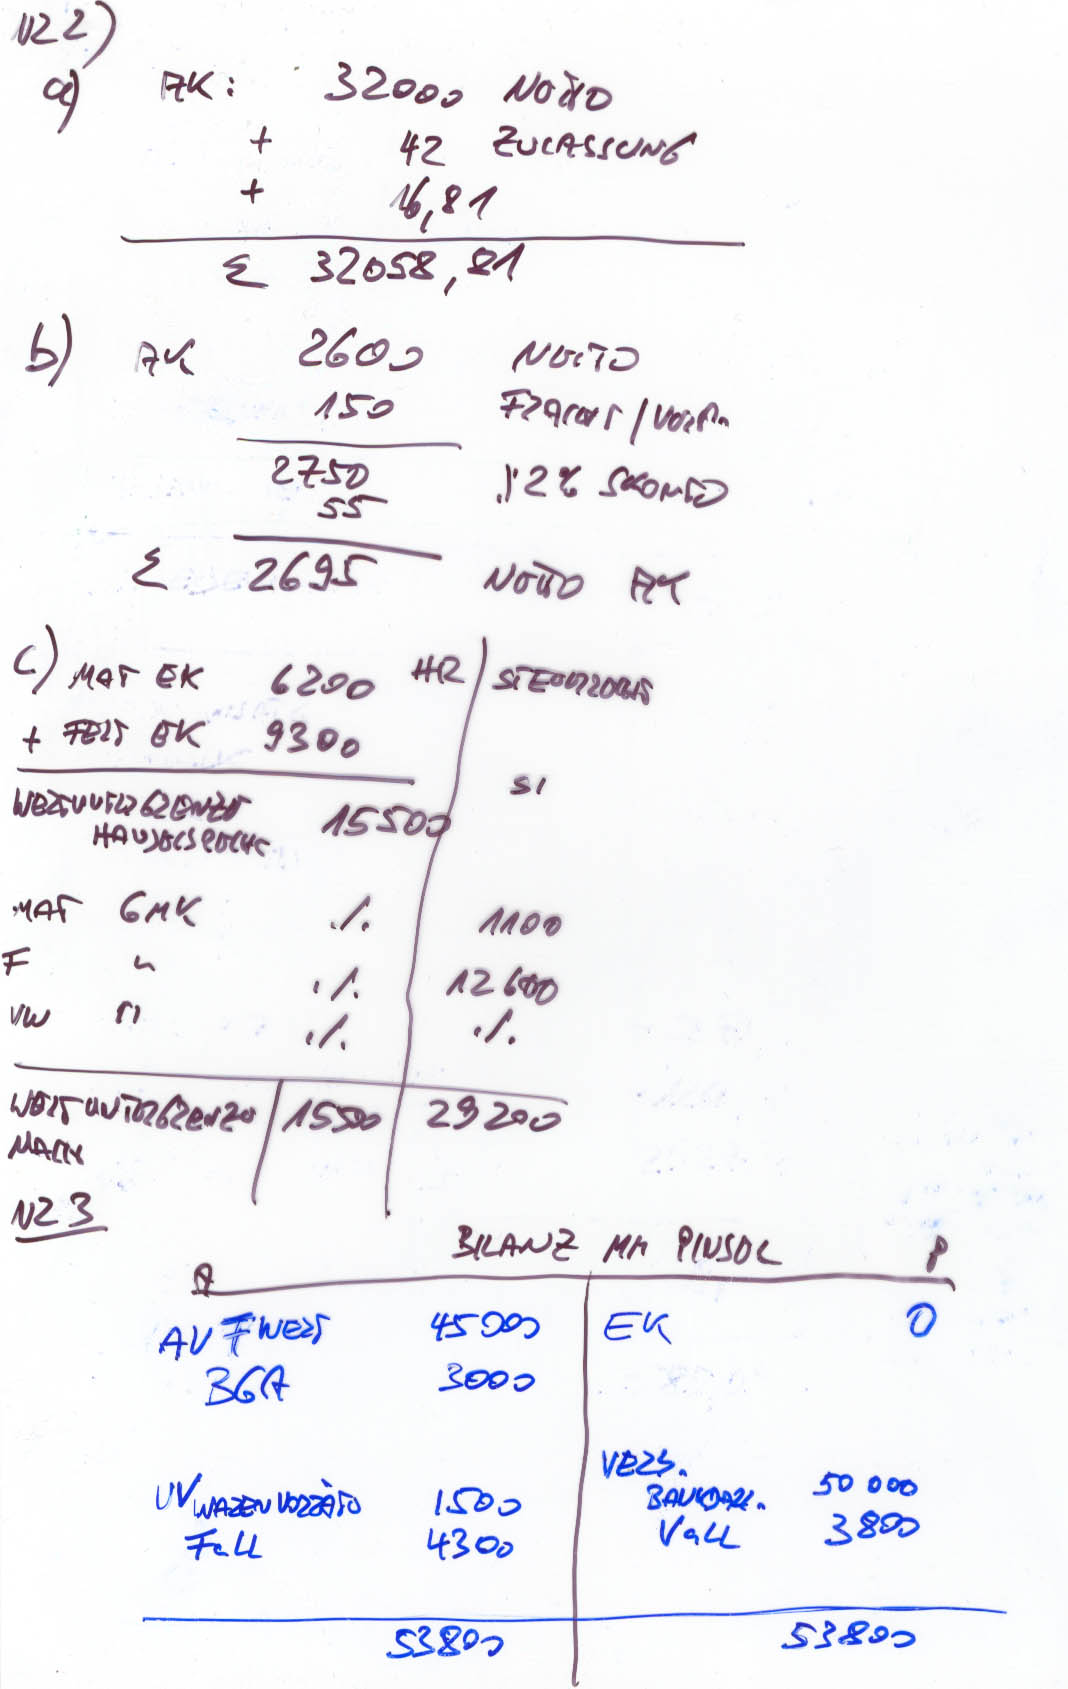 NR 2)
a) AK: 32000 NETTO
+ 42 ZULASSUNG
+ 16,81
Σ 32058,81
b) AK 2600 NETTO
150 FRACHT / VERP.
2750 ./. 2% SKONTO
55
Σ 2695 NETTO AK
c) MAT EK 6200 HR STEUERRECHT
+ FERT EK 9300
SI
WERTUNTERGRENZE 15500
HANDELSRECHT
MAT GMK ./. 1100
F " ./. 12600
VW " ./. ./.
WERTUNTERGRENZE 15500 29200
NR 3
BILANZ MM PINSEL
A P
AV FWERT 45000 EK 0
BGA 3000
VERB.
UV WARENVORRÄTE 1500 BANKDARL. 50 000
FaLL 4300 VaLL 3800
53800 53800